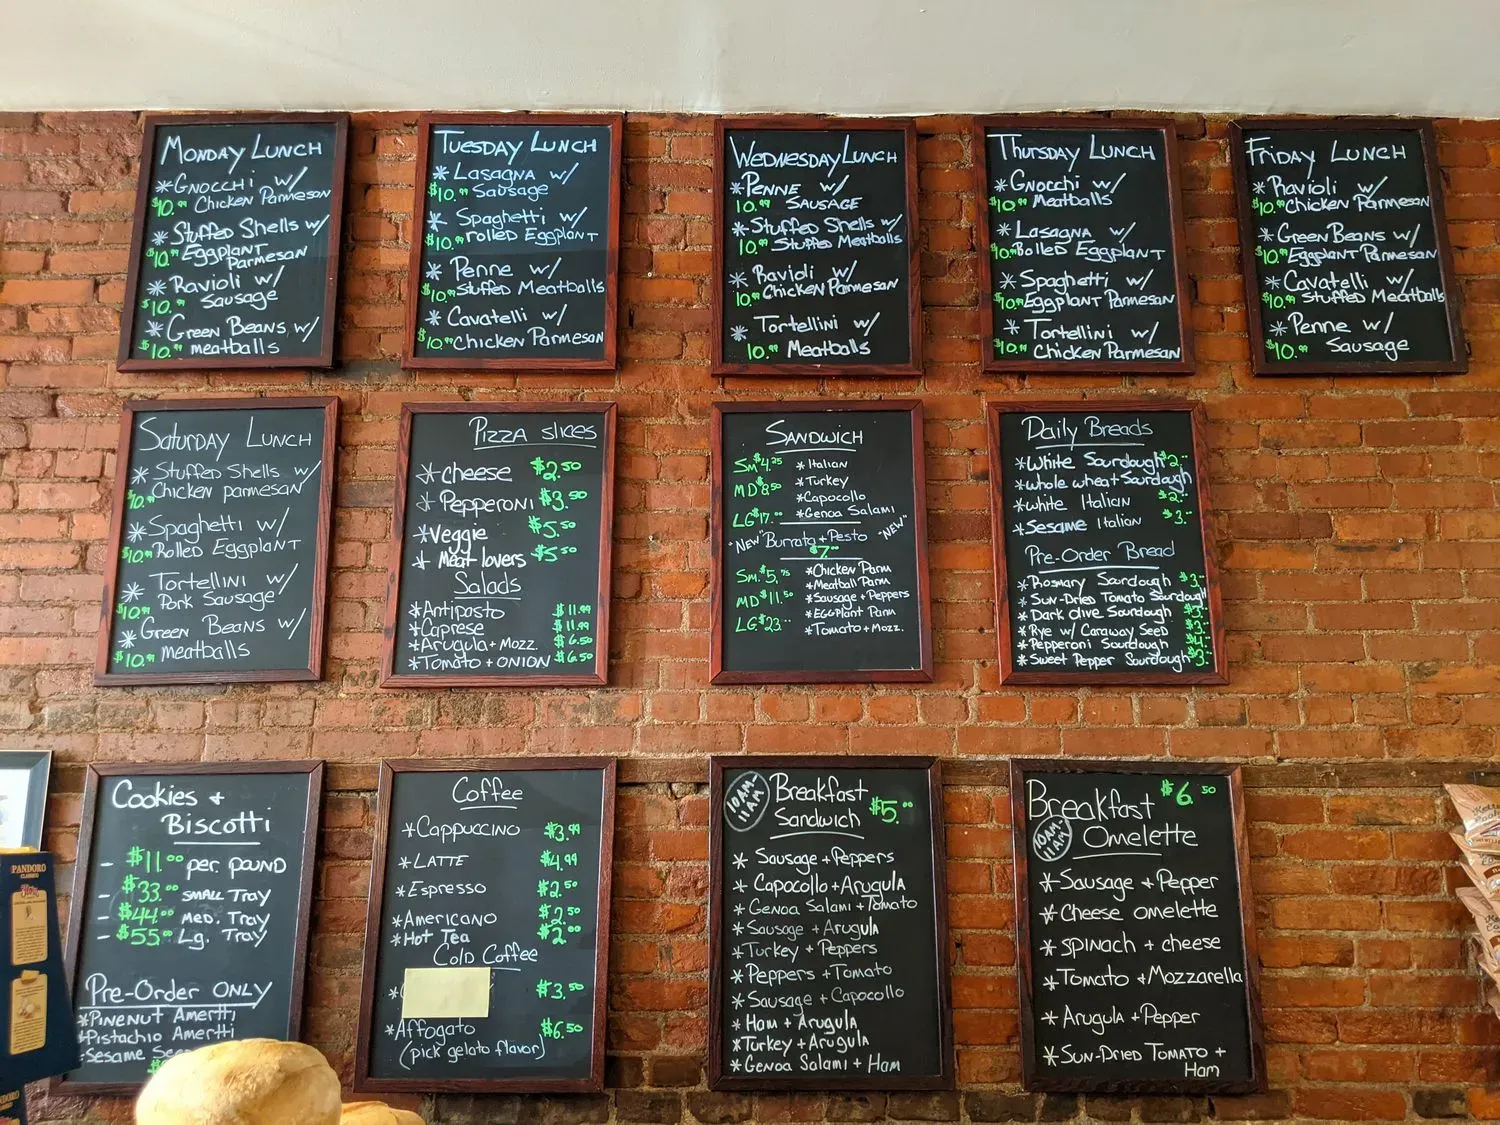 MONDAY LUNCH
*GNOCCHI w/
$10.99 CHICKEN PARMESAN
*Stuffed Shells w/
$10.99 EGGPLANT
PARMESAN
*Ravioli w/
$10.99 Sausage
*Green Beans w/
$10.99 meatballs
TUESDAY LUNCH
*LASAGNA w/
$10.99 Sausage
*Spaghetti w/
$10.99 rolled EggplANT
*Penne w/
$10.99 Stuffed Meatballs
*Cavatelli w/
$10.99 Chicken Parmesan
WEDNESDAY LUNCH
*PENNE w/
10.99 SAUSAGE
*Stuffed Shells w/
10.99 Stuffed Meatballs
*Ravioli w/
10.99 Chicken Parmesan
*Tortellini w/
10.99 Meatballs
THURSDAY LUNCH
*GNOCCHI w/
$10.99 Meatballs
*LASAGNA w/
$10.99 Rolled EggplANT
*Spaghetti w/
$10.99 Eggplant Parmesan
*TORTELLINI w/
$10.99 Chicken Parmesan
FRIDAY LUNCH
*Ravioli w/
$10.99 Chicken Parmesan
*Green Beans w/
$10.99 Eggplant Parmesan
*Cavatelli w/
$10.99 Stuffed Meatballs
*Penne w/
$10.99 Sausage
SATURDAY LUNCH
*Stuffed Shells w/
$10.99 Chicken parmesan
*Spaghetti w/
$10.99 Rolled EggplANT
*TORTELLINI w/
$10.99 Pork Sausage
*Green Beans w/
$10.99 meatballs
PIZZA slices
*cheese $2.50
*PEPPERONI $3.50
*Veggie $5.50
*Meat lovers $5.50
Salads
*Antipasto $11.99
*Caprese $11.99
*Arugula + Mozz. $6.50
*Tomato + ONION $6.50
SANDWICH
Sm $4.25 *Italian
MD $8.50 *Turkey
*Capocollo
LG $17.00 *Genoa Salami
"NEW" Burrata + Pesto "NEW"
$7.00
Sm. $5.75 *Chicken Parm
*Meatball Parm
MD $11.50 *Sausage + Peppers
*EggPlant Parm
LG. $23.00 *Tomato + Mozz.
Daily Breads
*White Sourdough $2.
*Whole wheat Sourdough
*White Italian $2.
*Sesame Italian $3.
Pre-Order Bread
*Rosmary Sourdough $3.
*Sun-Dried Tomato Sourdough
*Dark Olive Sourdough $3.
*Rye w/ Caraway Seed
*Pepperoni Sourdough $4.
*Sweet Pepper Sourdough $3.
Cookies +
Biscotti
- $11.00 per POUND
- $33.00 SMALL Tray
- $44.00 MED. Tray
- $55.00 Lg. Tray
Pre-Order ONLY
*PINENUT AMERTTI
*Pistachio Amertti
*Sesame
Coffee
*CAPPUCCINO $3.99
*LATTE $4.99
*Espresso $2.50
*AMERICANO $2.50
*HOT Tea $2.00
Cold Coffee
* $3.50
*Affogato $6.50
(pick gelato flavor)
10AM-
11AM
Breakfast
Sandwich $5.00
*Sausage + Peppers
*Capocollo + Arugula
*Genoa Salami + Tomato
*Sausage + Arugula
*Turkey + Peppers
*Peppers + Tomato
*Sausage + Capocollo
*Ham + Arugula
*Turkey + Arugula
*Genoa Salami + Ham
Breakfast $6.50
10AM-
11AM
Omelette
*Sausage + Pepper
*Cheese omelette
*Spinach + cheese
*Tomato + Mozzarella
*Arugula + Pepper
*SUN-DRIED TOMATO +
Ham
PANDORO
CLASSICO